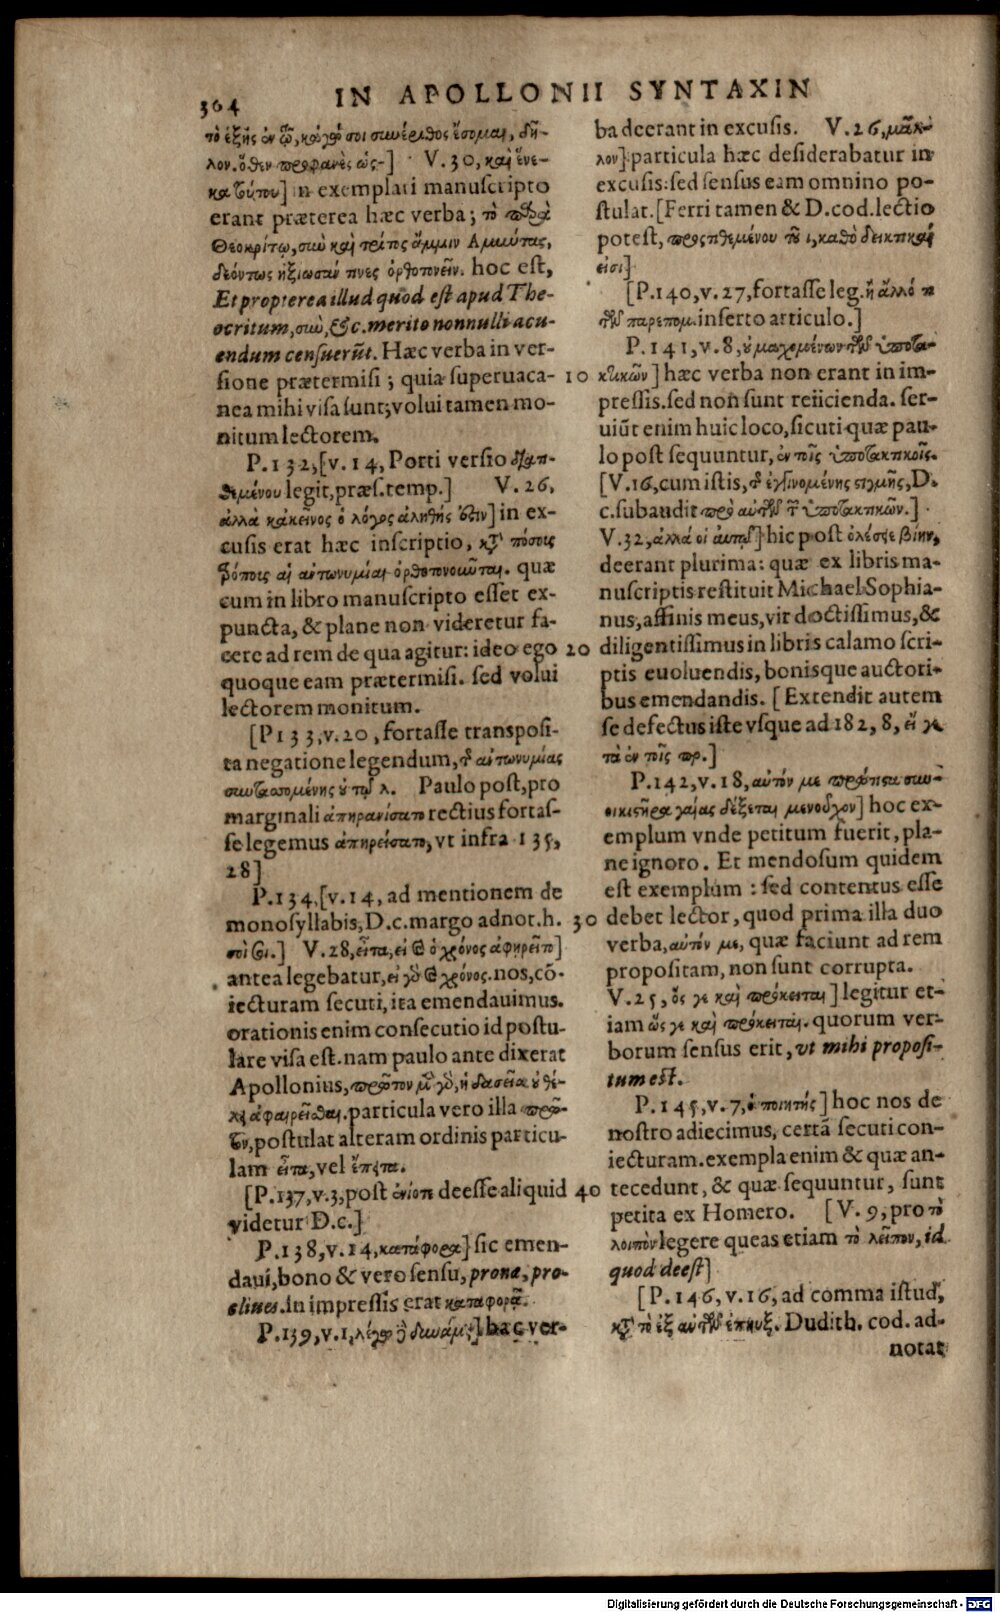 304
IN APOLLONII SYNTAXIN
τὸ ἑξῆς ἐν τῷ, κᾀγώ σοι συνέριθος ἔσομαι, δῆ-
λον. ὅθεν προφανὲς ὡς-] V. 30, καὶ ἕνε-
κα τούτου] in exemplari manuscripto
erant præterea hæc verba; τὸ παρὰ
Θεοκρίτῳ,
δεόντως ἠξίωσάν τινες ὀρθοτονεῖν. hoc est,
Et propterea illud quod est apud The-
ocritum, &c. merito nonnulli acu-
endum censuerūt. Hæc verba in ver-
sione prætermisi; quia superuaca- 10
nea mihi visa sunt; volui tamen mo-
nitum lectorem.
P. 132, [v. 14, Porti versio
legit, præs. temp.] V. 26,
ἀλλὰ κἀκεῖνος ὁ λόγος ἀληθής ἐστιν] in ex-
cusis erat hæc inscriptio, κατὰ πόσους
τρόπους αἱ ἀντωνυμίαι ὀρθοτονοῦνται. quæ
cum in libro manuscripto esset ex-
puncta, & plane non videretur fa-
cere ad rem de qua agitur: ideo ego 20
quoque eam prætermisi. sed volui
lectorem monitum.
[P 133, v. 20, fortasse transposi-
ta negatione legendum, τῆς ἀντωνυμίας
συντασσομένης οὐ Paulo post, pro
marginali ἀπηρανίσατο rectius fortas-
se legemus ἀπηρείσατο, vt infra 135,
28]
P. 134, [v. 14, ad mentionem de
monosyllabis, D. c. margo adnot. h. 30
V. 28, εἶτα, εἰ καὶ ὁ χρόνος ἀφῃρεῖτο]
antea legebatur, εἰ γὰρ καὶ χρόνος. nos, cō-
iecturam secuti, ita emendauimus.
orationis enim consecutio id postu-
lare visa est. nam paulo ante dixerat
Apollonius, πρῶτον μὲν γὰρ, ἡ δασεῖα οὐ θέ-
λει ἀφαιρεῖσθαι. particula vero illa πρῶ-
τον, postulat alteram ordinis particu-
lam εἶτα, vel ἔπειτα.
[P. 137, v. 3, post ἐνίοτε deesse aliquid 40
videtur D. c.]
P. 138, v. 14, κατάφορα] sic emen-
daui, bono & vero sensu, prona, pro-
cliues. in impressis erat καταφορᾶ.
P. 139, v. 1, λέγω δὲ δυνάμει] hæc ver-
ba deerant in excusis. V. 26, μᾶλ-
λον] particula hæc desiderabatur in
excusis: sed sensus eam omnino po-
stulat. [Ferri tamen & D. cod. lectio
potest, προστιθεμένου τοῦ ι, καθὸ δεικτικαί
εἰσι]
[P. 140, v. 27, fortasse leg. ἢ ἄλλό τι
τῶν παρεπομ. inserto articulo.]
P. 141, v. 8, οὐ μαχομένων τῶν ὑποτα-
κτικῶν] hæc verba non erant in im-
pressis. sed non sunt reiicienda. ser-
uiūt enim huic loco, sicuti quæ pau-
lo post sequuntur, ἐν τοῖς ὑποτακτικοῖς.
[V. 16, cum istis, τῆς ἐγγινομένης στιγμῆς, D.
c. subaudit πρὸ αὐτῶν τῶν ὑποτακτικῶν.]
V. 32, ἀλλά οἱ αὐτῷ] hic post ὀλέσειε βίην,
deerant plurima: quæ ex libris ma-
nuscriptis restituit Michael Sophia-
nus, affinis meus, vir doctissimus, &
diligentissimus in libris calamo scri-
ptis euoluendis, bonisque auctori-
bus emendandis. [Extendit autem
se defectus iste vsque ad 182, 8, εἴ γε
τὰ ἐν τοῖς πρ.]
P. 142, v. 18, αὐτόν με
γαίας δέξεται] hoc ex-
emplum vnde petitum fuerit, pla-
ne ignoro. Et mendosum quidem
est exemplum: sed contentus esse
debet lector, quod prima illa duo
verba, αὐτόν με, quæ faciunt ad rem
propositam, non sunt corrupta.
V. 25, ὅς γε καὶ πρόκειται] legitur et-
iam ὥς γε καὶ πρόκειται. quorum ver-
borum sensus erit, vt mihi proposi-
tum est.
P. 145, v. 7, ὁ ποιητής] hoc nos de
nostro adiecimus, certā secuti con-
iecturam. exempla enim & quæ an-
tecedunt, & quæ sequuntur, sunt
petita ex Homero. [V. 9, pro τὸ
λοιπὸν legere queas etiam τὸ λεῖπον, id
quod deest]
[P. 146, v. 16, ad comma istud,
κατὰ τὸ ἐξ αὐτῶν Dudith. cod. ad-
notat
Digitalisierung gefördert durch die Deutsche Forschungsgemeinschaft - DFG